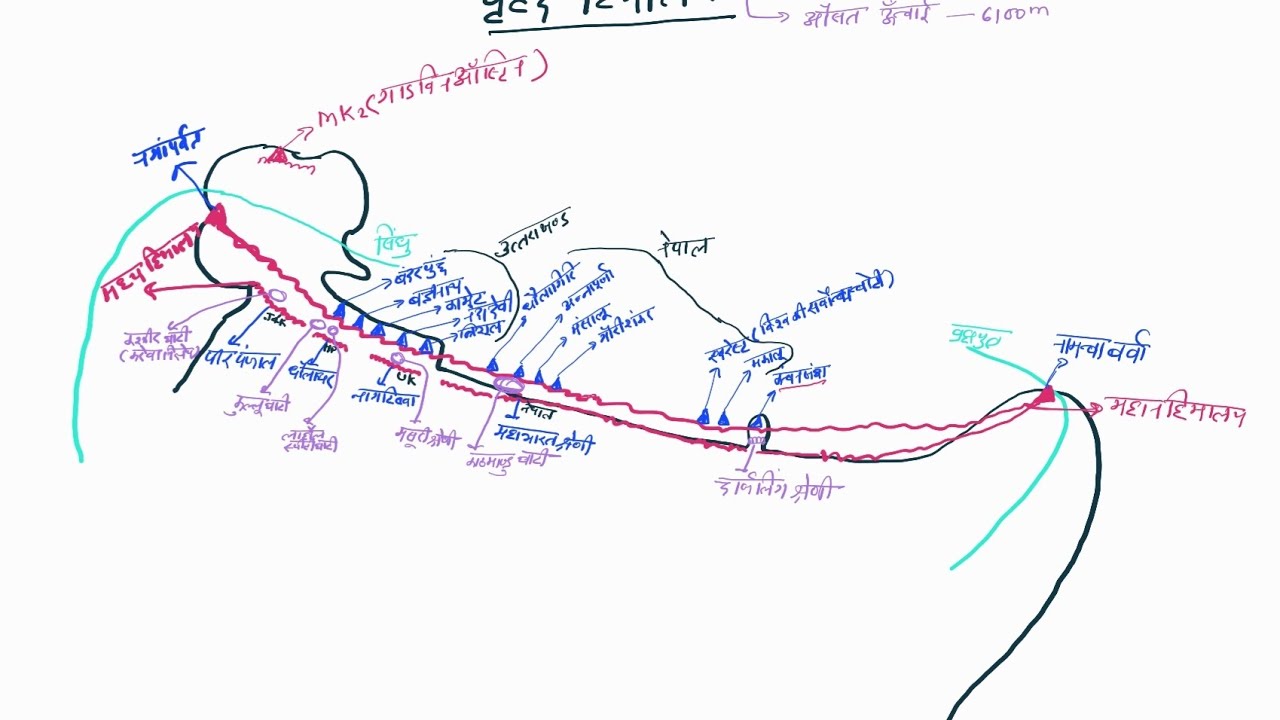 औसत ऊँचाई — 6100m
MK2 (गाडविन ऑस्टिन)
नंगापर्वत
मध्य हिमालय
सिंधु
उत्तराखण्ड
नेपाल
बंदरपूंछ
बद्रीनाथ
कामेट
नंदादेवी
त्रिशूल
धौलागिरि
अन्नपूर्णा
मंसालू
गौरीशंकर
एवरेस्ट (विश्व की सर्वोच्च चोटी)
मकालू
कंचनजंघा
ब्रह्मपुत्र
नामचा बर्वा
महान हिमालय
J&K
पीरपंजाल
HP
धौलाधर
कुल्लू घाटी
UK
नागटिब्बा
मसूरी श्रेणी
नेपाल
महाभारत श्रेणी
काठमाण्डू घाटी
दार्जिलिंग श्रेणी